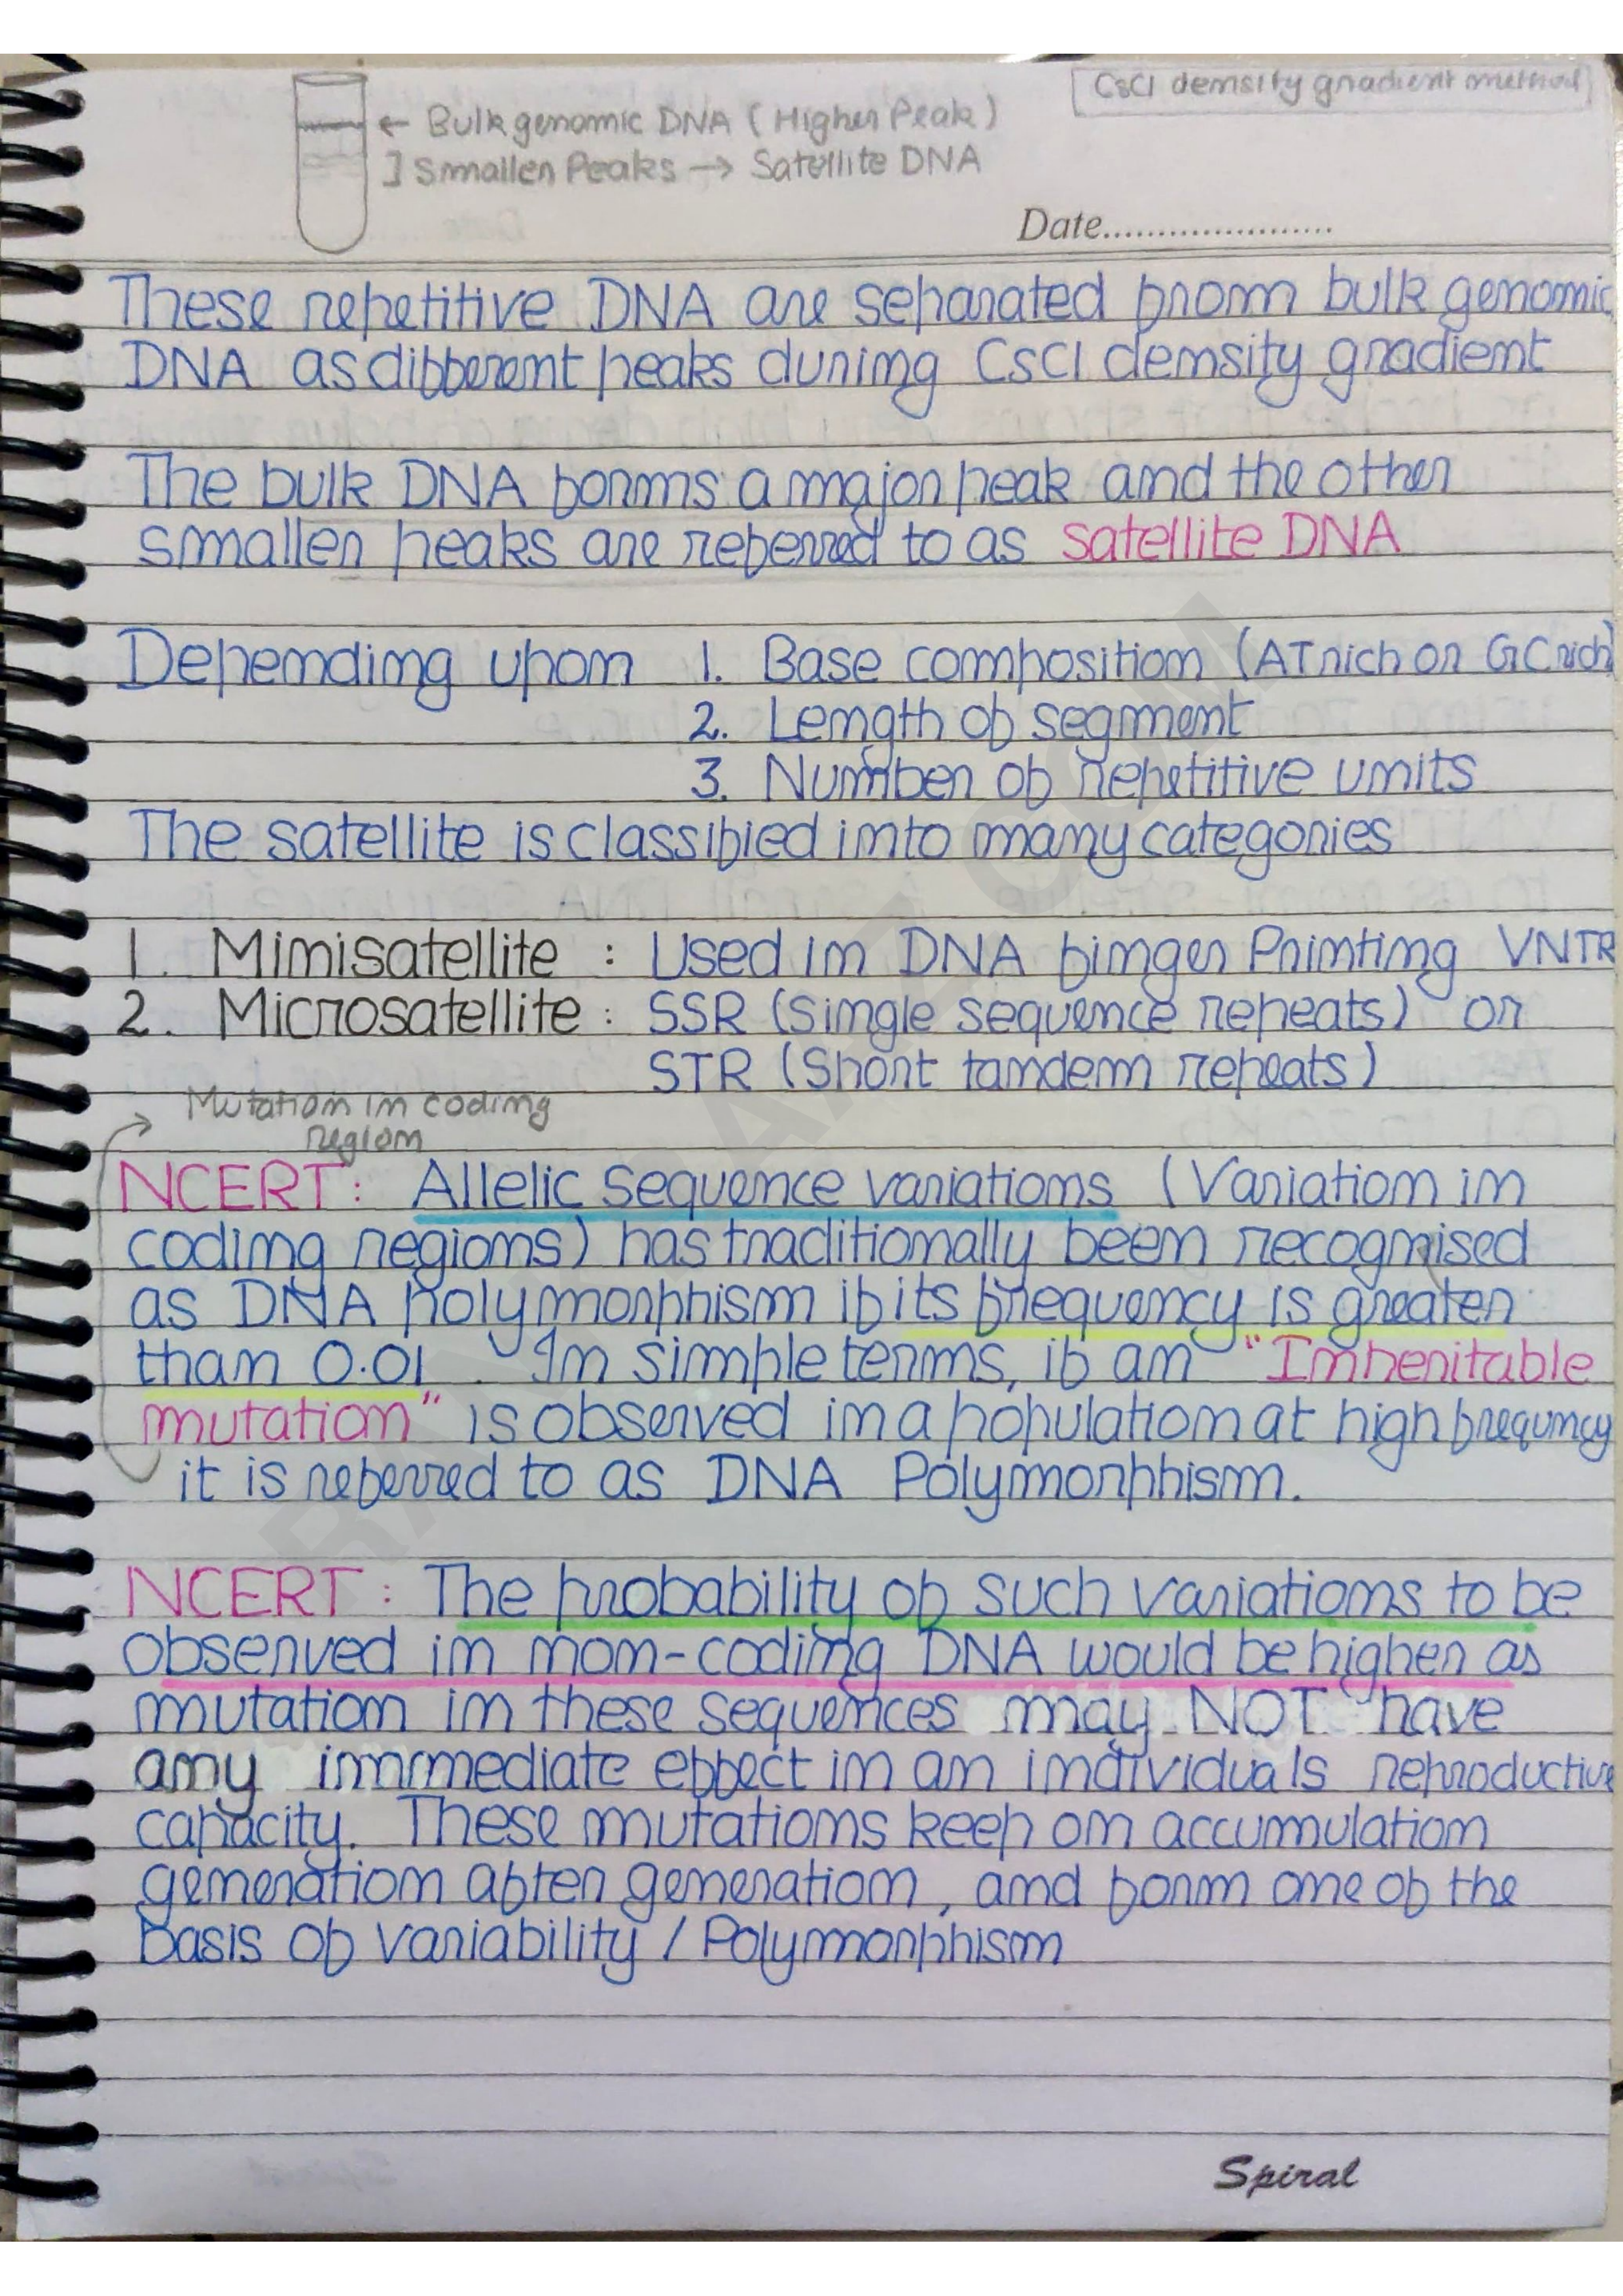 CsCl density gradient method
← Bulk genomic DNA (Higher Peak)
] Smaller Peaks → Satellite DNA
Date.....................
These repetitive DNA are separated from bulk genomic
DNA as different peaks during CsCl density gradient
The bulk DNA forms a major peak and the other
smaller peaks are referred to as satellite DNA
Depending upon 1. Base composition (AT rich or GC rich)
2. Length of segment
3. Number of repetitive units
The satellite is classified into many categories
1. Minisatellite : Used in DNA finger Printing VNTR
2. Microsatellite : SSR (Single sequence repeats) or
STR (Short tandem repeats)
Mutation in coding
region
NCERT: Allelic sequence variations (Variation in
coding regions) has traditionally been recognised
as DNA polymorphism if its frequency is greater
than 0.01. In simple terms, if an "Inheritable
mutation" is observed in a population at high frequncy
it is referred to as DNA Polymorphism.
NCERT: The probability of such variations to be
observed in non-coding DNA would be higher as
mutation in these sequences may NOT have
any immediate effect in an individuals reproductive
capacity. These mutations keep on accumulation
generation after generation, and form one of the
basis of variability / Polymorphism
Spiral